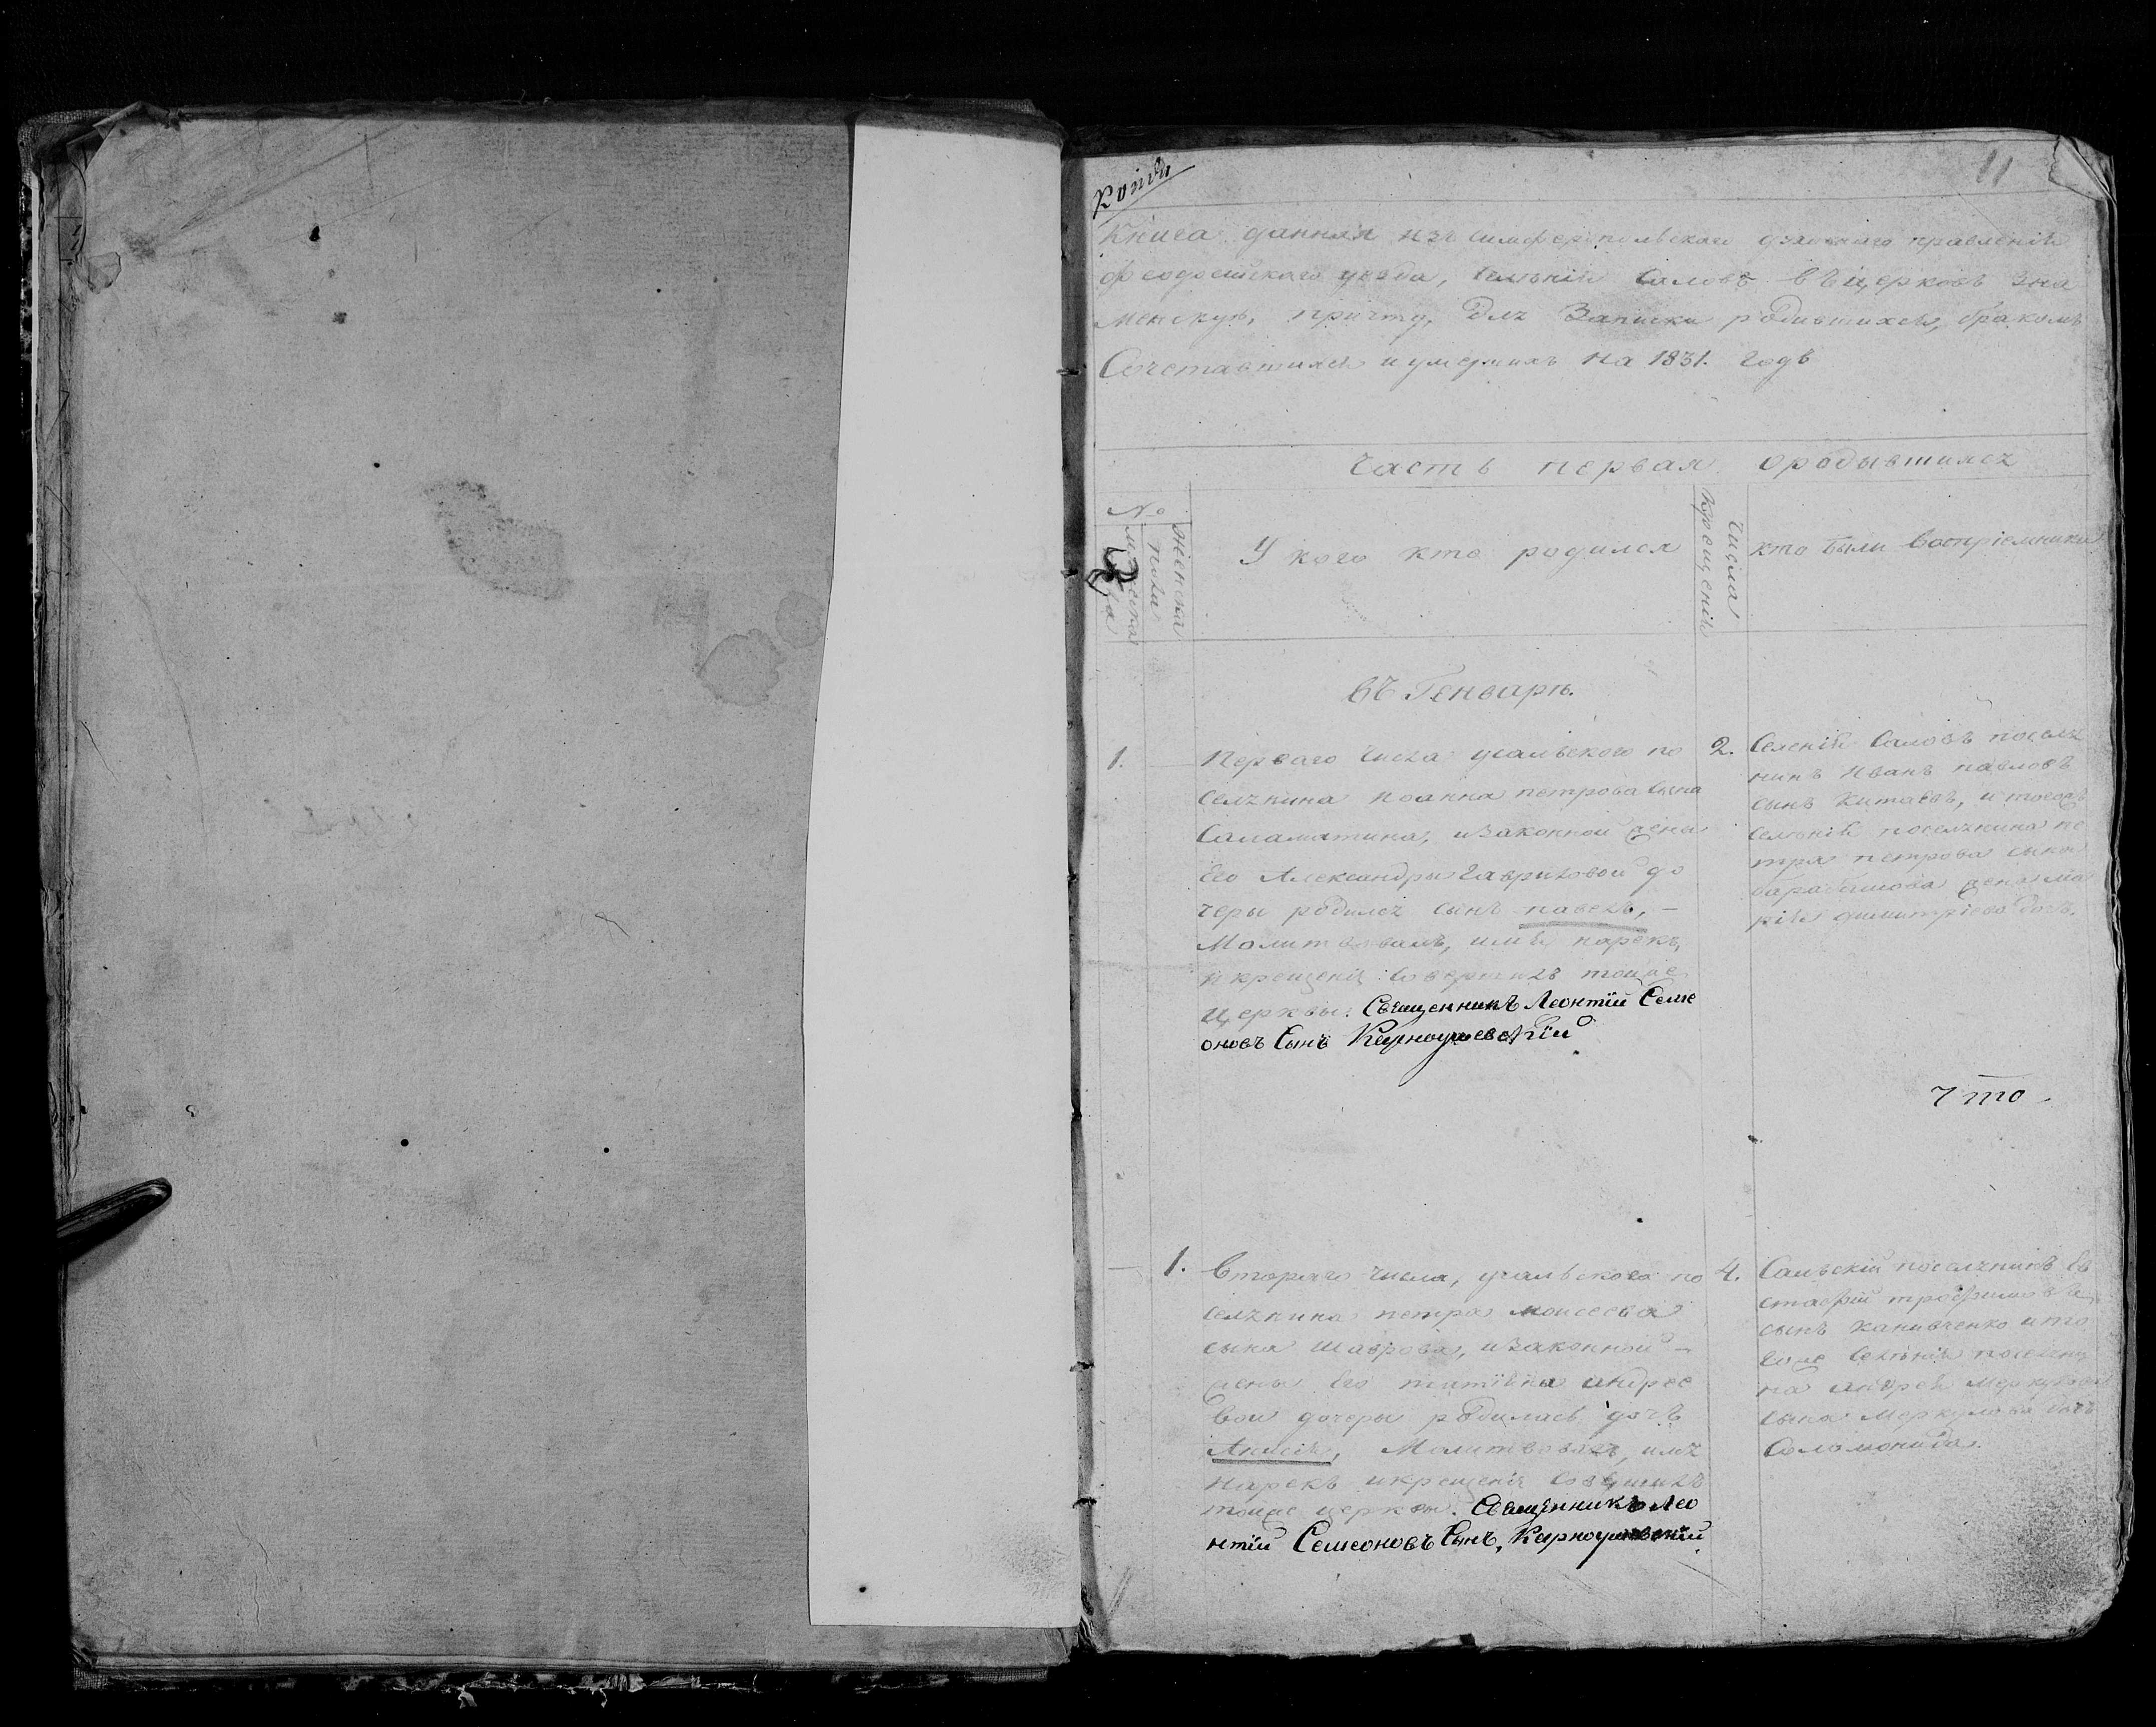 Копія
11
Книга данная изъ симферопольскаго духовнаго правленія
Феодосійскаго уезда, Селенія Саловъ въ церковъ Зна
менскую, причту, для Записки родившихся, бракомъ
Сочетавшихся и умершихъ на 1831. годъ
Часть первая ородывшихся
№
мужеска пола
женска пола
У кого кто родился
Числа крещенія
кто были воспріемники
въ Генваре.
1.
Перваго числа усалвского по
селянина иоанна петрова сына
Саламатина, изаконной жены
Его Александры Гавриловой до
черы родился сынъ павелъ, —
Молитвовалъ, имя нарекъ,
и крещеніе совершилъ тояже
церквы: Священникъ Леонтій Семе
оновъ Сынъ Карноушевскій
2.
Селенія Саловъ поселя
нинъ Иванъ павловъ
сынъ Китаевъ, и тогожъ
Селенія поселянина пе
тра петрова сына
барабашова жена ма
рія димитріева дочъ.
что
1.
Втораго числа, усалвского по
селянина петра моисеева
сына Шаврова, изаконной —
жены Его татіяна андрее
вои дочеры родилась дочъ
Анисія, Молитвовалъ, имя
нарекъ и крещеніе совершилъ
тояже церквы. Священникъ Лео
нтій Семеоновъ Сынъ, Карноушевскій
4.
Салвскій поселянинъ Ев
стафій трофимовъ
сынъ Канивченко и то
гоже Селенія поселяни
на андрея Меркулова
сына Меркулова дочъ
Соломонида.